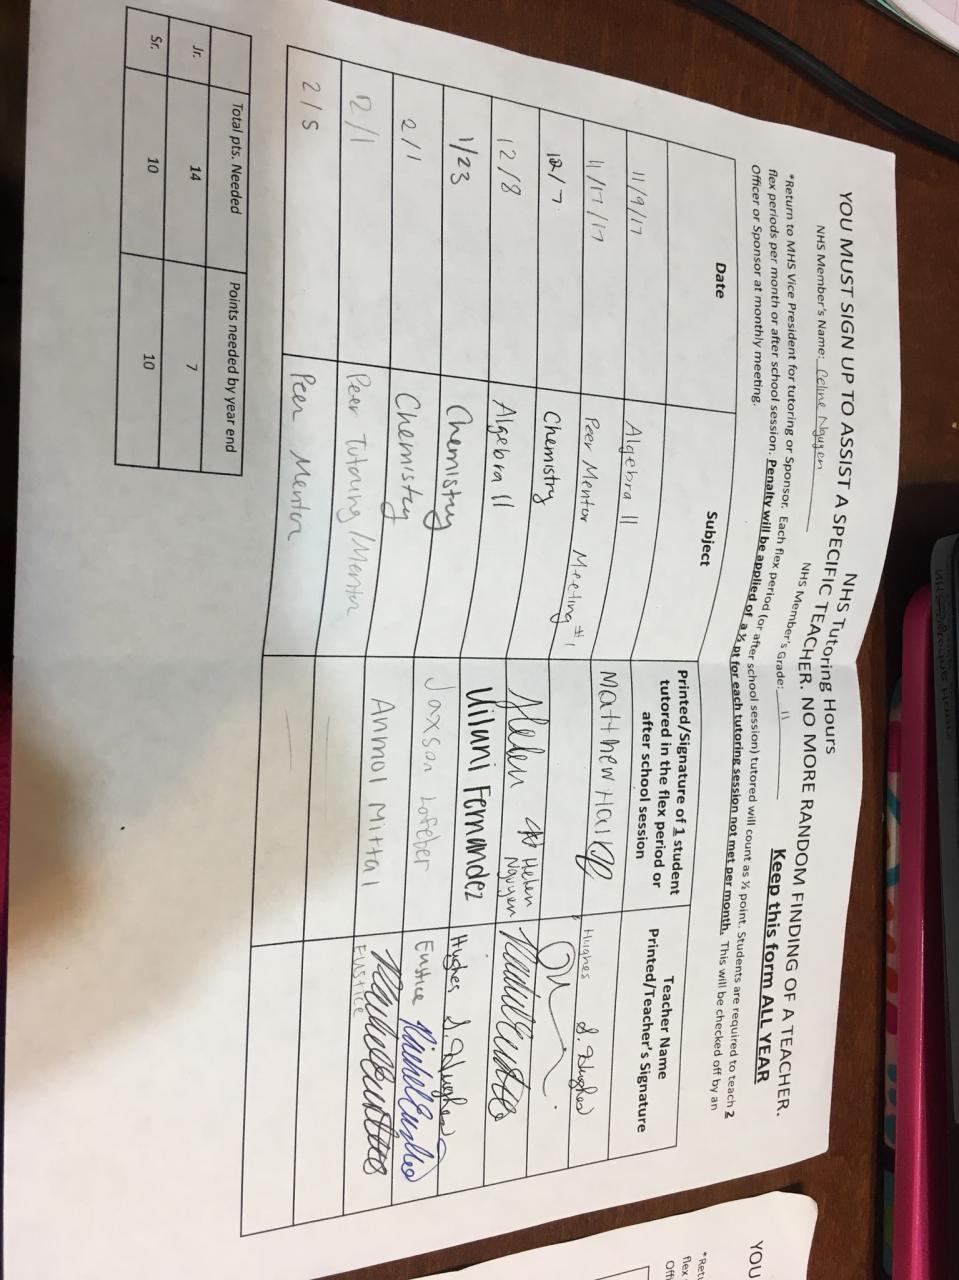 NHS Tutoring Hours
YOU MUST SIGN UP TO ASSIST A SPECIFIC TEACHER. NO MORE RANDOM FINDING OF A TEACHER.
NHS Member's Name: Celine Nguyen NHS Member's Grade: 11 Keep this form ALL YEAR
*Return to MHS Vice President for tutoring or Sponsor. Each flex period (or after school session) tutored will count as ½ point. Students are required to teach 2
flex periods per month or after school session. Penalty will be applied of a ½ pt for each tutoring session not met per month. This will be checked off by an
Officer or Sponsor at monthly meeting.
Date Subject Printed/Signature of 1 student tutored in the flex period or after school session Teacher Name Printed/Teacher's Signature
11/9/17 Algebra II Matthew Hughes S. Hughes
11/17/17 Peer Mentor Meeting #1
12/7 Chemistry Helen Helen Nguyen
12/8 Algebra II Vinuni Fernandez Hughes S. Hughes
1/23 Chemistry Jaxson Lofeber Eustice Rachel Eustice
2/1 Chemistry Anmol Mittal Eustice
12/1 Peer Tutoring/Mentor
2/5 Peer Mentor
Total pts. Needed Points needed by year end
Jr. 14 7
Sr. 10 10
YOU
*Retu
flex
Offi